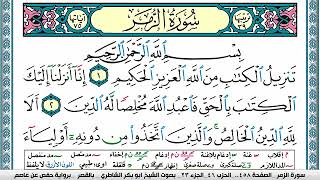 سُورَةُ الزُّمَر
بِسْمِ ٱللَّهِ ٱلرَّحْمَٰنِ ٱلرَّحِيمِ
تَنزِيلُ ٱلْكِتَٰبِ مِنَ ٱللَّهِ ٱلْعَزِيزِ ٱلْحَكِيمِ ١ إِنَّآ أَنزَلْنَآ إِلَيْكَ
ٱلْكِتَٰبَ بِٱلْحَقِّ فَٱعْبُدِ ٱللَّهَ مُخْلِصًا لَّهُ ٱلدِّينَ ٢ أَلَا
لِلَّهِ ٱلدِّينُ ٱلْخَالِصُ وَٱلَّذِينَ ٱتَّخَذُوا۟ مِن دُونِهِۦٓ أَوْلِيَآءَ
سورة الزمر الصفحة ٤٥٨ الحزب ٤٦ الجزء ٢٣ بصوت الشيخ أبو بكر الشاطري بالقصر برواية حفص عن عاصم